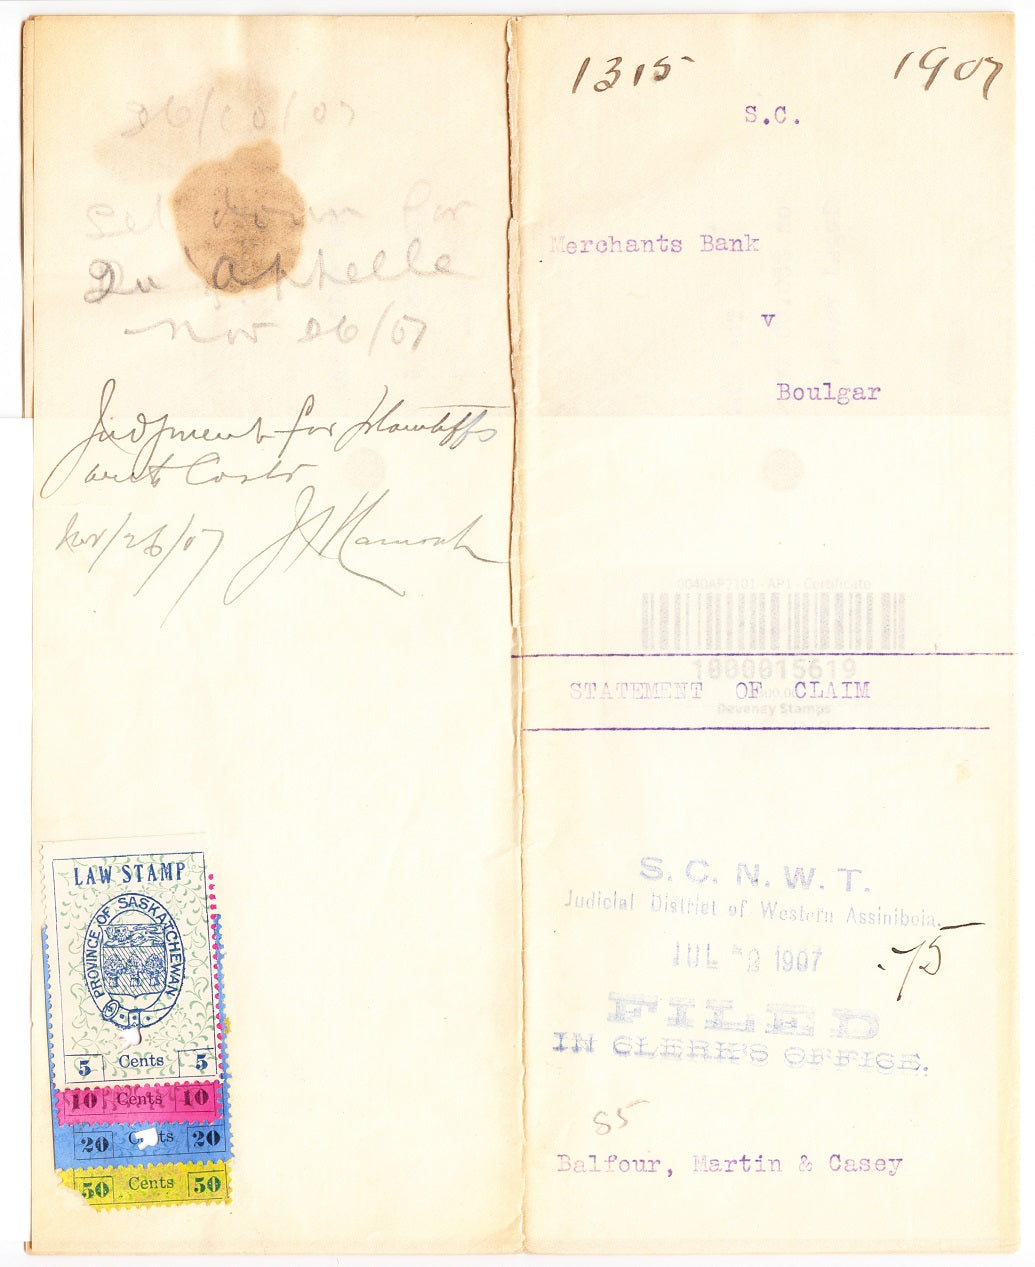 26/10/07
Set down for
Qu'Appelle
Nov 26/07
Judgment for Plaintiffs
with Costs
Nov/26/07
LAW STAMP
PROVINCE OF SASKATCHEWAN
5 Cents 5
10 Cents 10
20 Cents 20
50 Cents 50
1315 1907
S.C.
Merchants Bank
v
Boulgar
0040AP7101 - AP1 - Certificate
1000015619
STATEMENT OF CLAIM
Deveney Stamps
S. C. N. W. T.
Judicial District of Western Assiniboia.
JUL 1907
.75
FILED
IN CLERK'S OFFICE.
85
Balfour, Martin & Casey